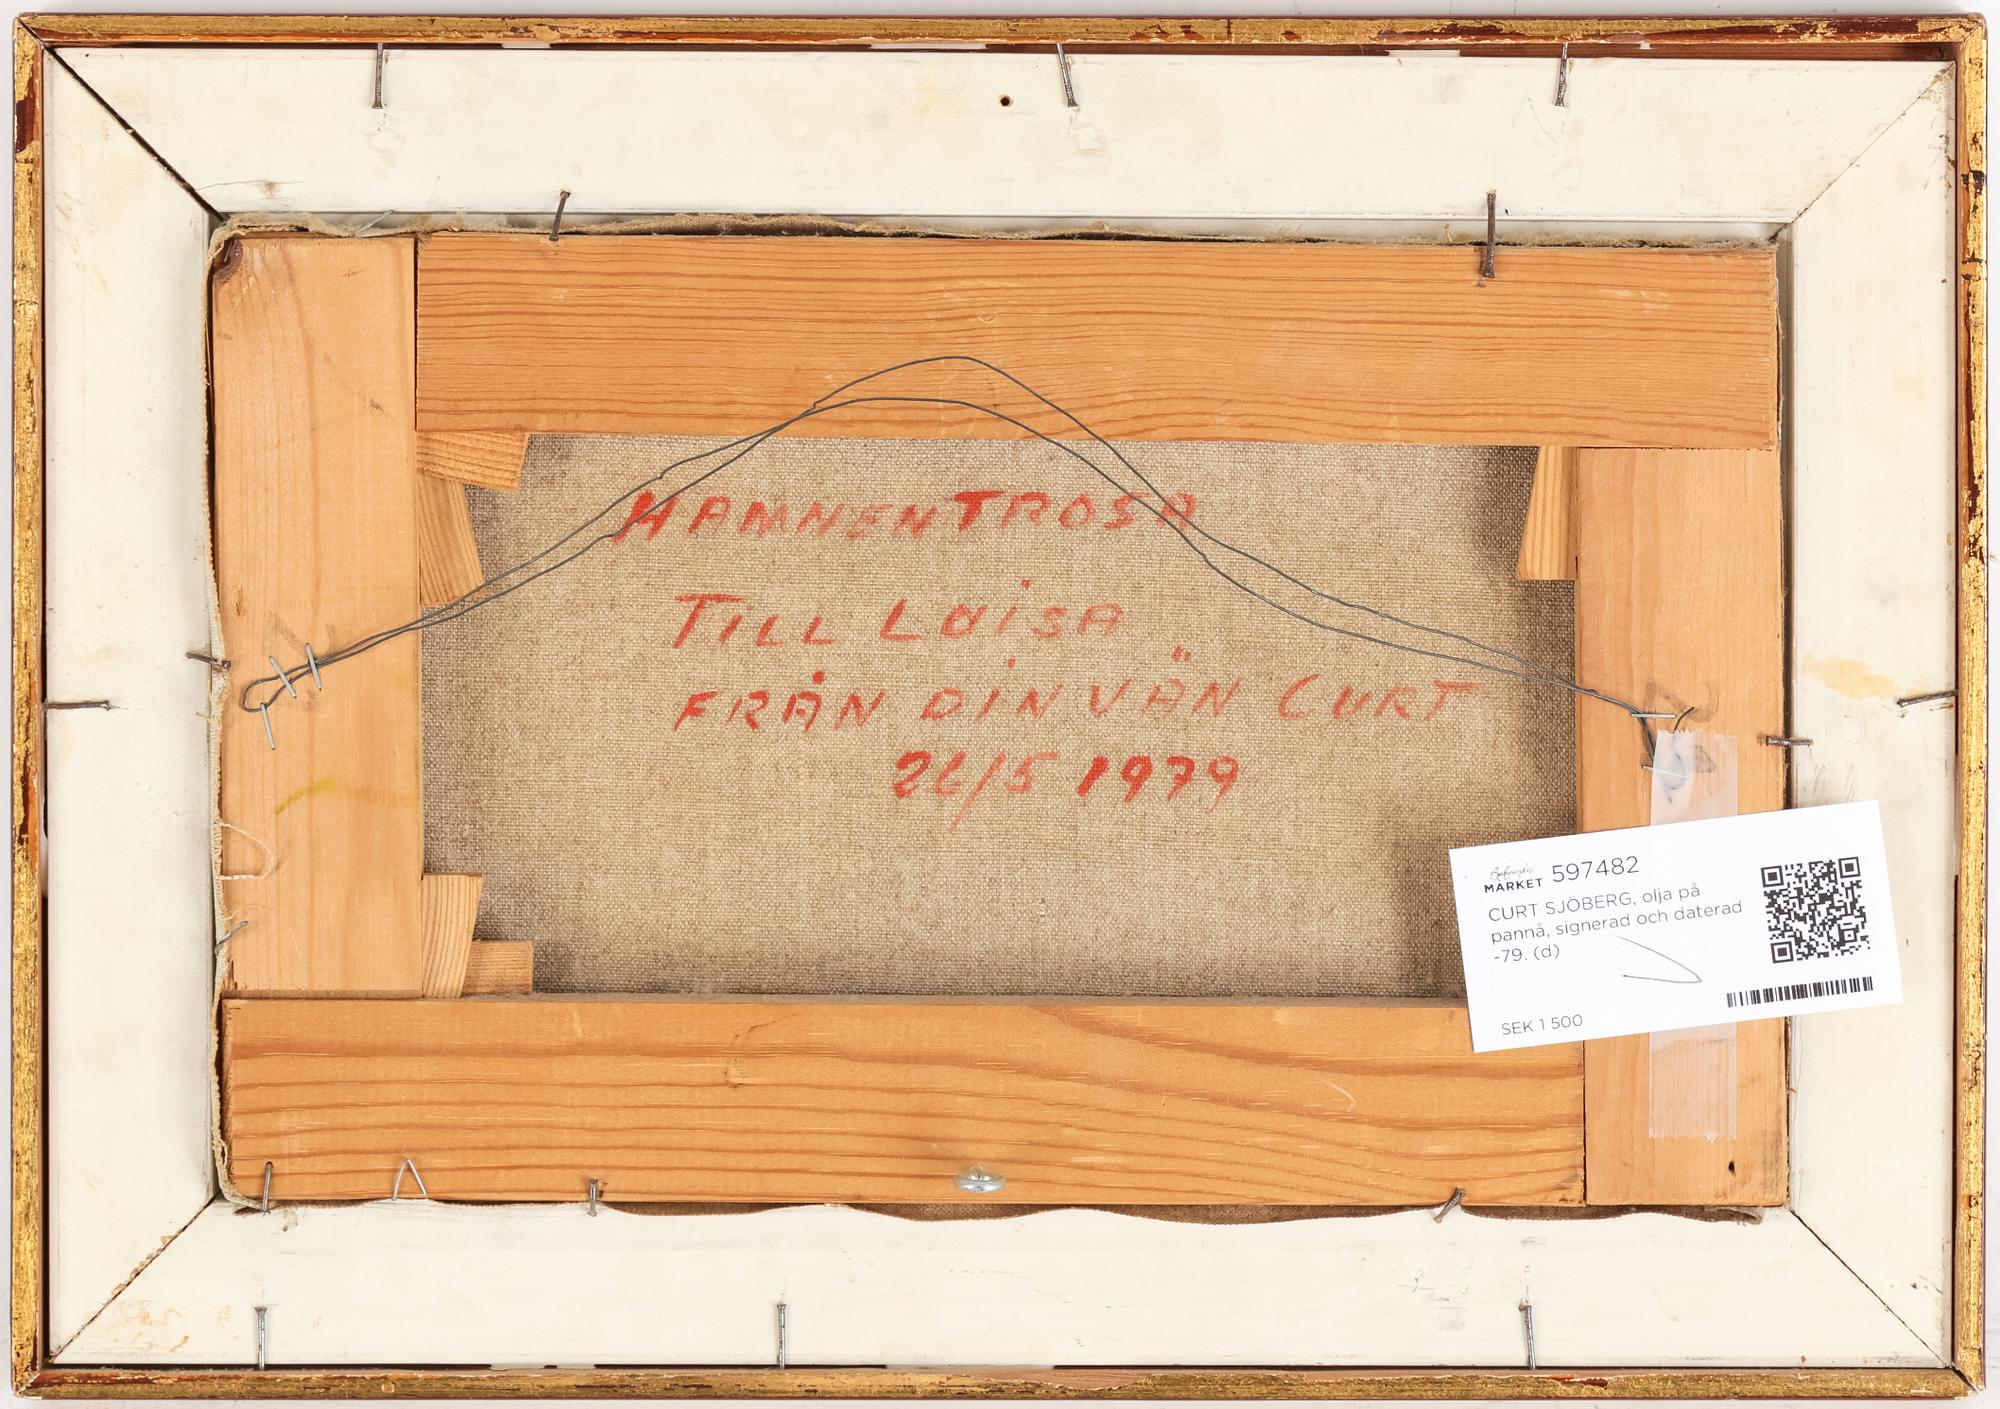 HAMNEN TROSA
TILL LOISA
FRÅN DIN VÄN CURT
26/5 1979
Bukowskis
MARKET 597482
CURT SJÖBERG, olja på
pannå, signerad och daterad
-79. (d)
SEK 1 500